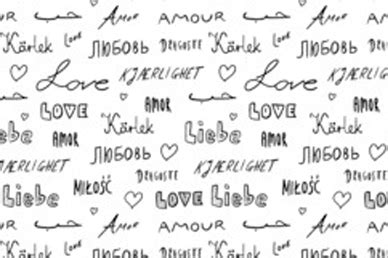 Amor AMOUR حب Amor AMOUR
Kärlek Love ЛЮБОВЬ DRAGOSTE Kärlek Love ЛЮБОВЬ DRAGOSTE
Love KJÆRLIGHET Love KJÆRLIGHET
حب LOVE AMOR حب LOVE AMOR
Liebe AMOR Kärlek Liebe AMOR Kärlek
KJÆRLIGHET ЛЮБОВЬ KJÆRLIGHET ЛЮБОВЬ
Liebe MIŁOŚĆ DRAGOSTE LOVE Liebe MIŁOŚĆ DRAGOSTE LOVE
AMOUR حب Amor AMOUR حب Amor
ЛЮБОВЬ DRAGOSTE Kärlek Love ЛЮБОВЬ DRAGOSTE Kärlek Love